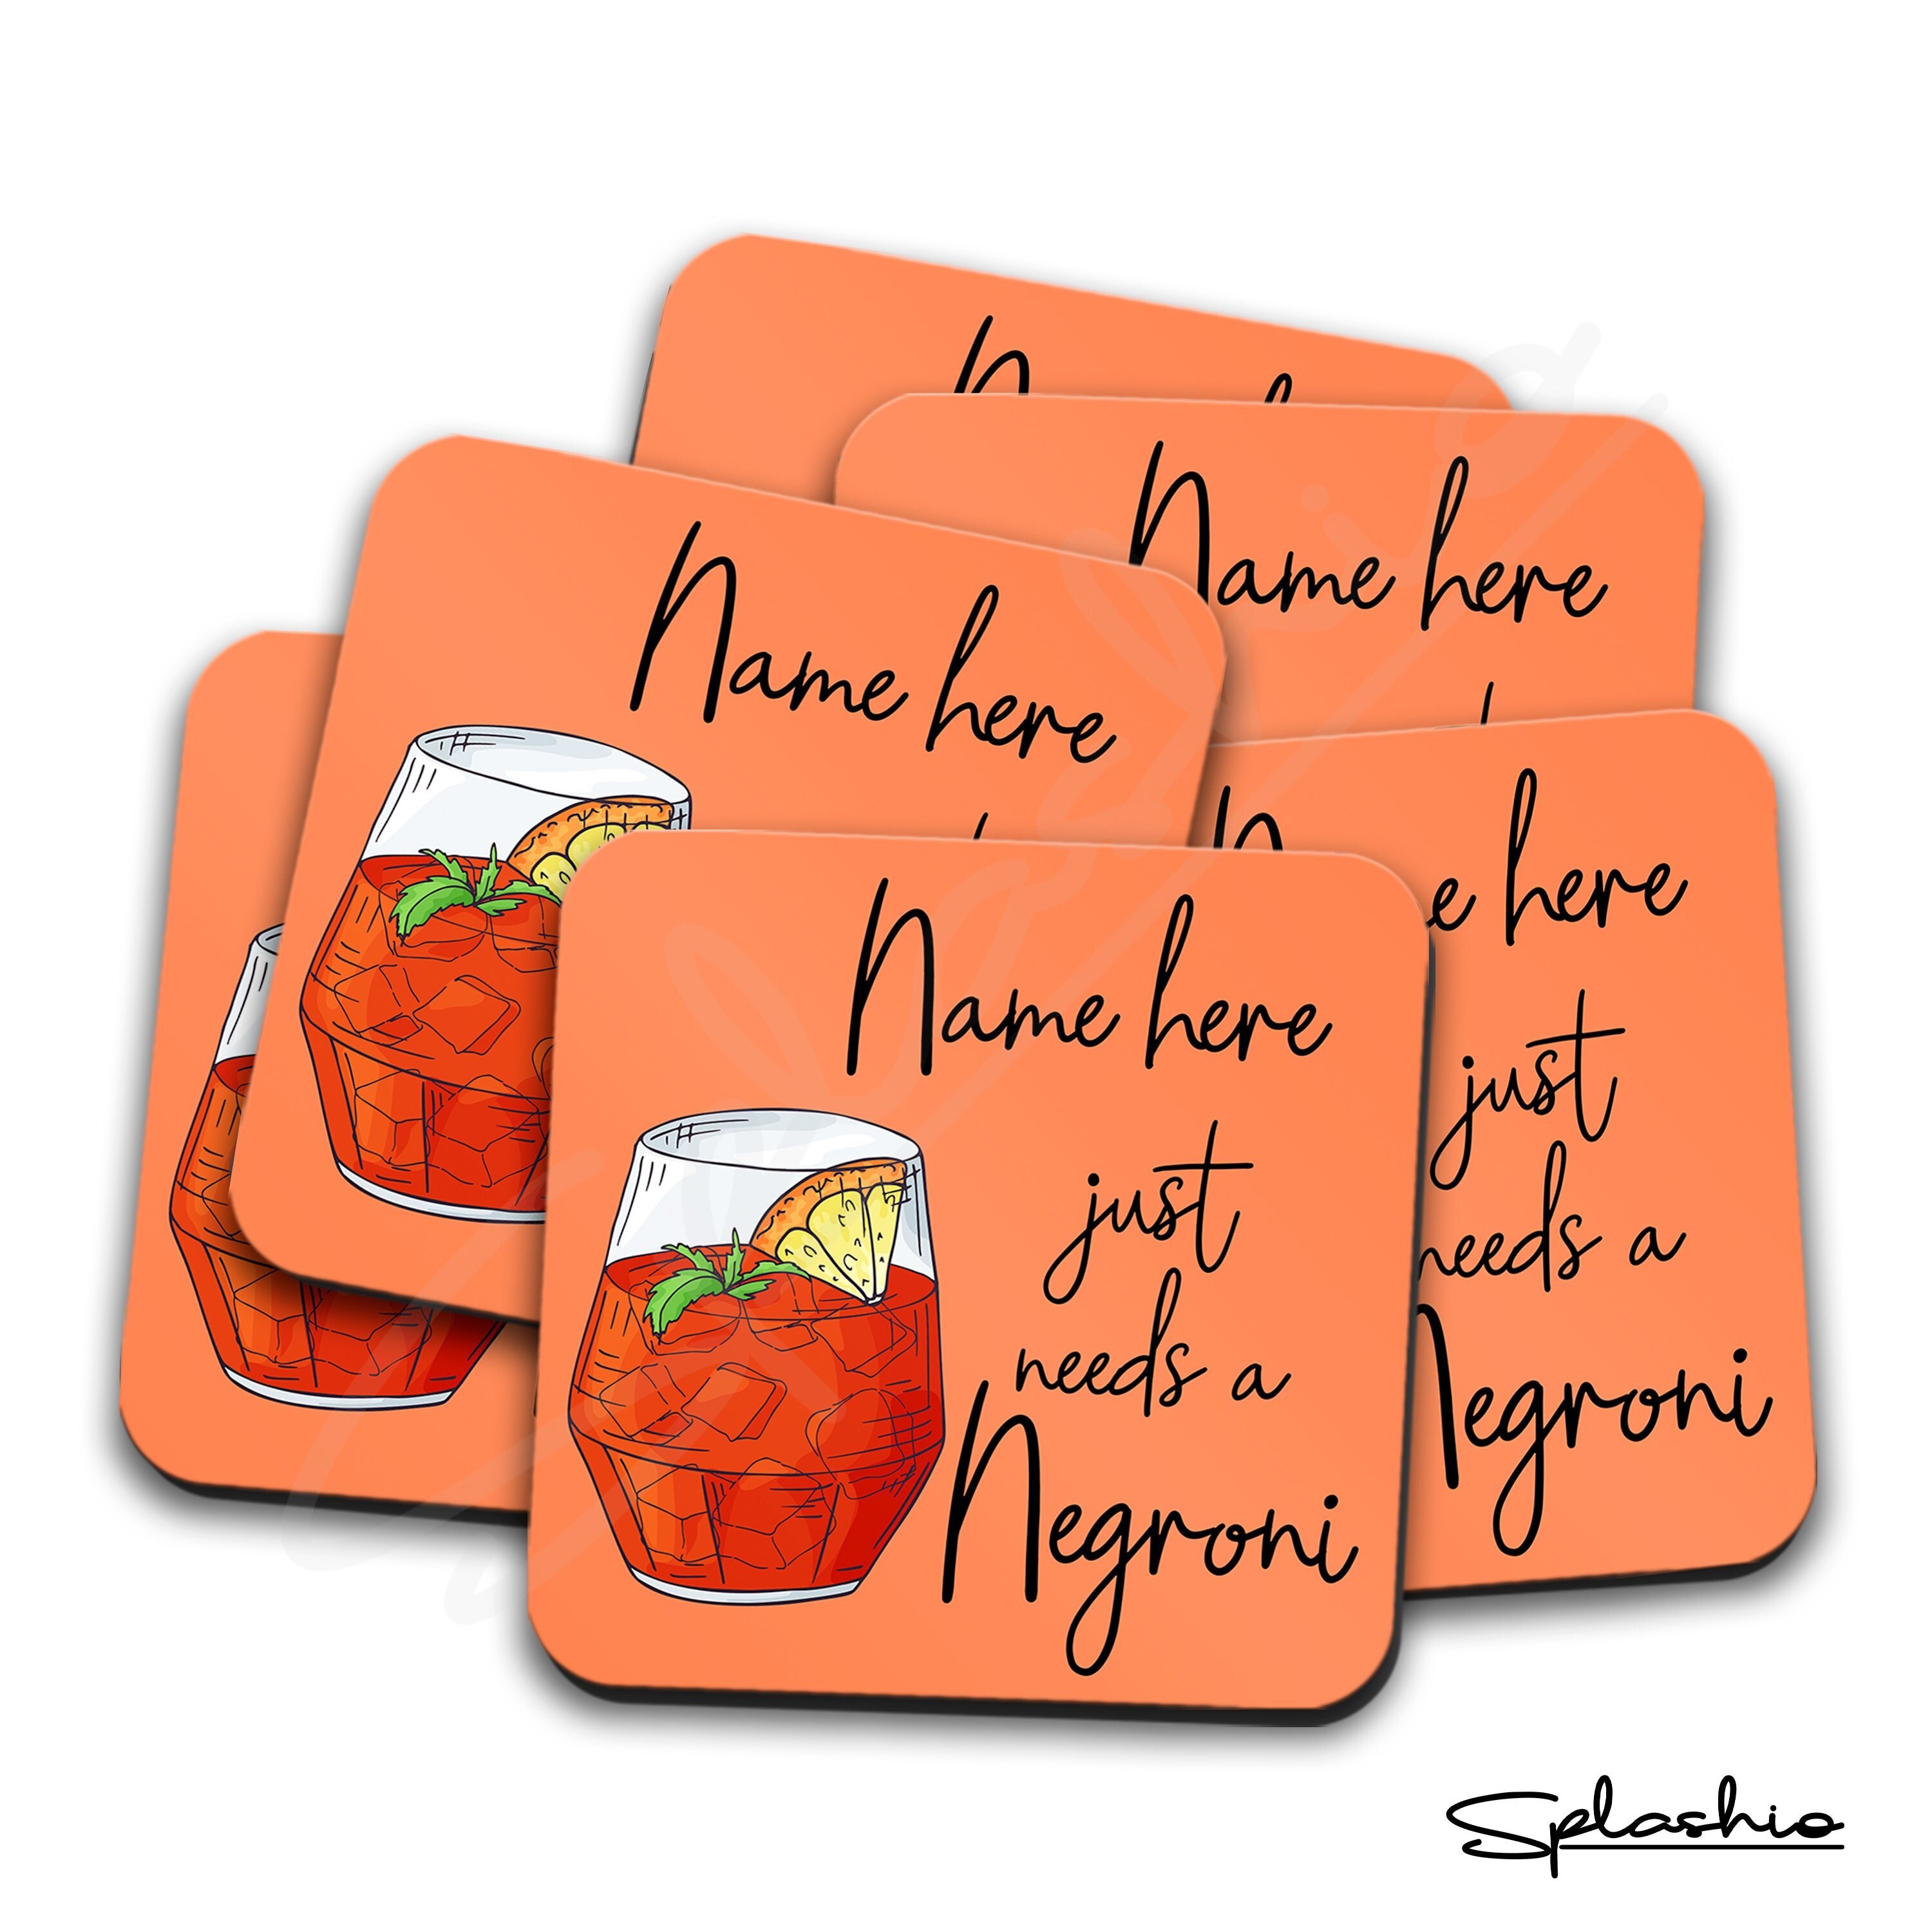 Name here
Name here
Name here
e here
just
needs a
Negroni
Name here
just
needs a
Negroni
Splashio